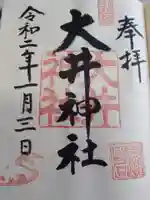 奉拝
大井神社
令和二年一月三日